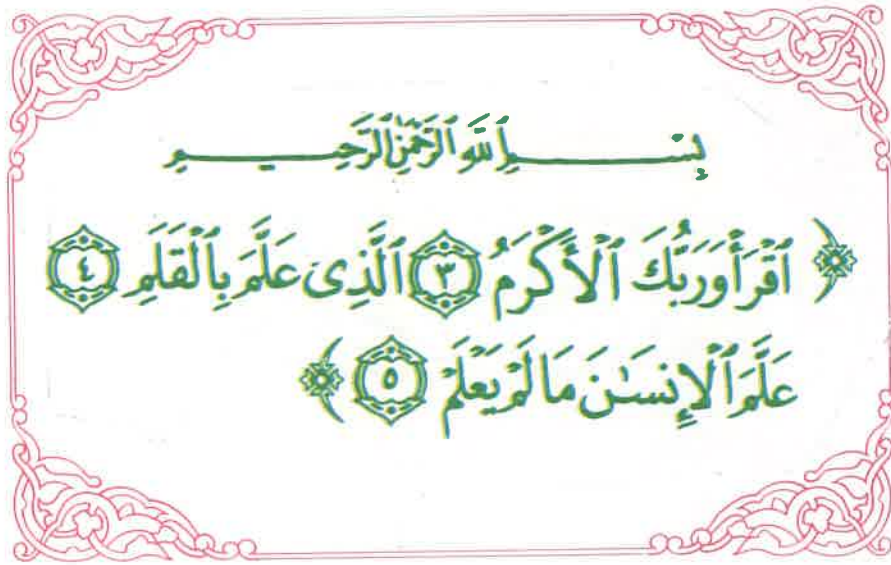 بِسْمِ ٱللَّهِ ٱلرَّحْمَٰنِ ٱلرَّحِيمِ
﴿ ٱقْرَأْ وَرَبُّكَ ٱلْأَكْرَمُ ٣ ٱلَّذِى عَلَّمَ بِٱلْقَلَمِ ٤
عَلَّمَ ٱلْإِنسَٰنَ مَا لَمْ يَعْلَمْ ٥ ﴾